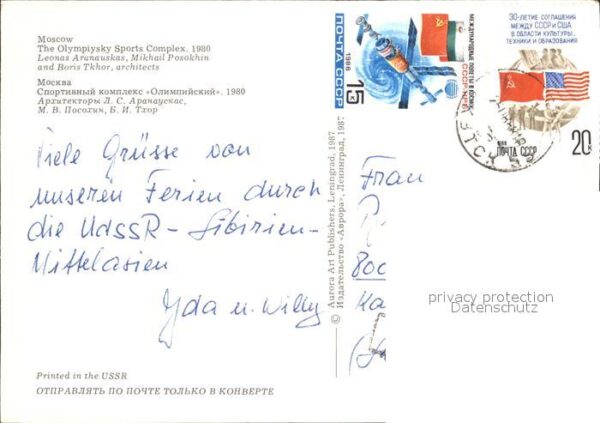 Moscow
The Olympiysky Sports Complex. 1980
Leonas Aranauskas, Mikhail Posokhin
and Boris Tkhor, architects
Москва
Спортивный комплекс «Олимпийский». 1980
Архитекторы Л. С. Аранаускас,
М. В. Посохин, Б. И. Тхор
Viele Grüsse von
unseren Ferien durch
die UdSSR - Sibirien-
Mittelasien
Ida u. Willy
Printed in the USSR
ОТПРАВЛЯТЬ ПО ПОЧТЕ ТОЛЬКО В КОНВЕРТЕ
© Aurora Art Publishers, Leningrad, 1987
Издательство «Аврора», Ленинград, 1987
ПОЧТА СССР
1986
15
МЕЖДУНАРОДНЫЕ ПОЛЕТЫ В КОСМОС
30-ЛЕТИЕ СОГЛАШЕНИЯ
МЕЖДУ СССР и США
В ОБЛАСТИ КУЛЬТУРЫ,
ТЕХНИКИ И ОБРАЗОВАНИЯ
ПОЧТА СССР
20к
Frau
privacy protection
Datenschutz